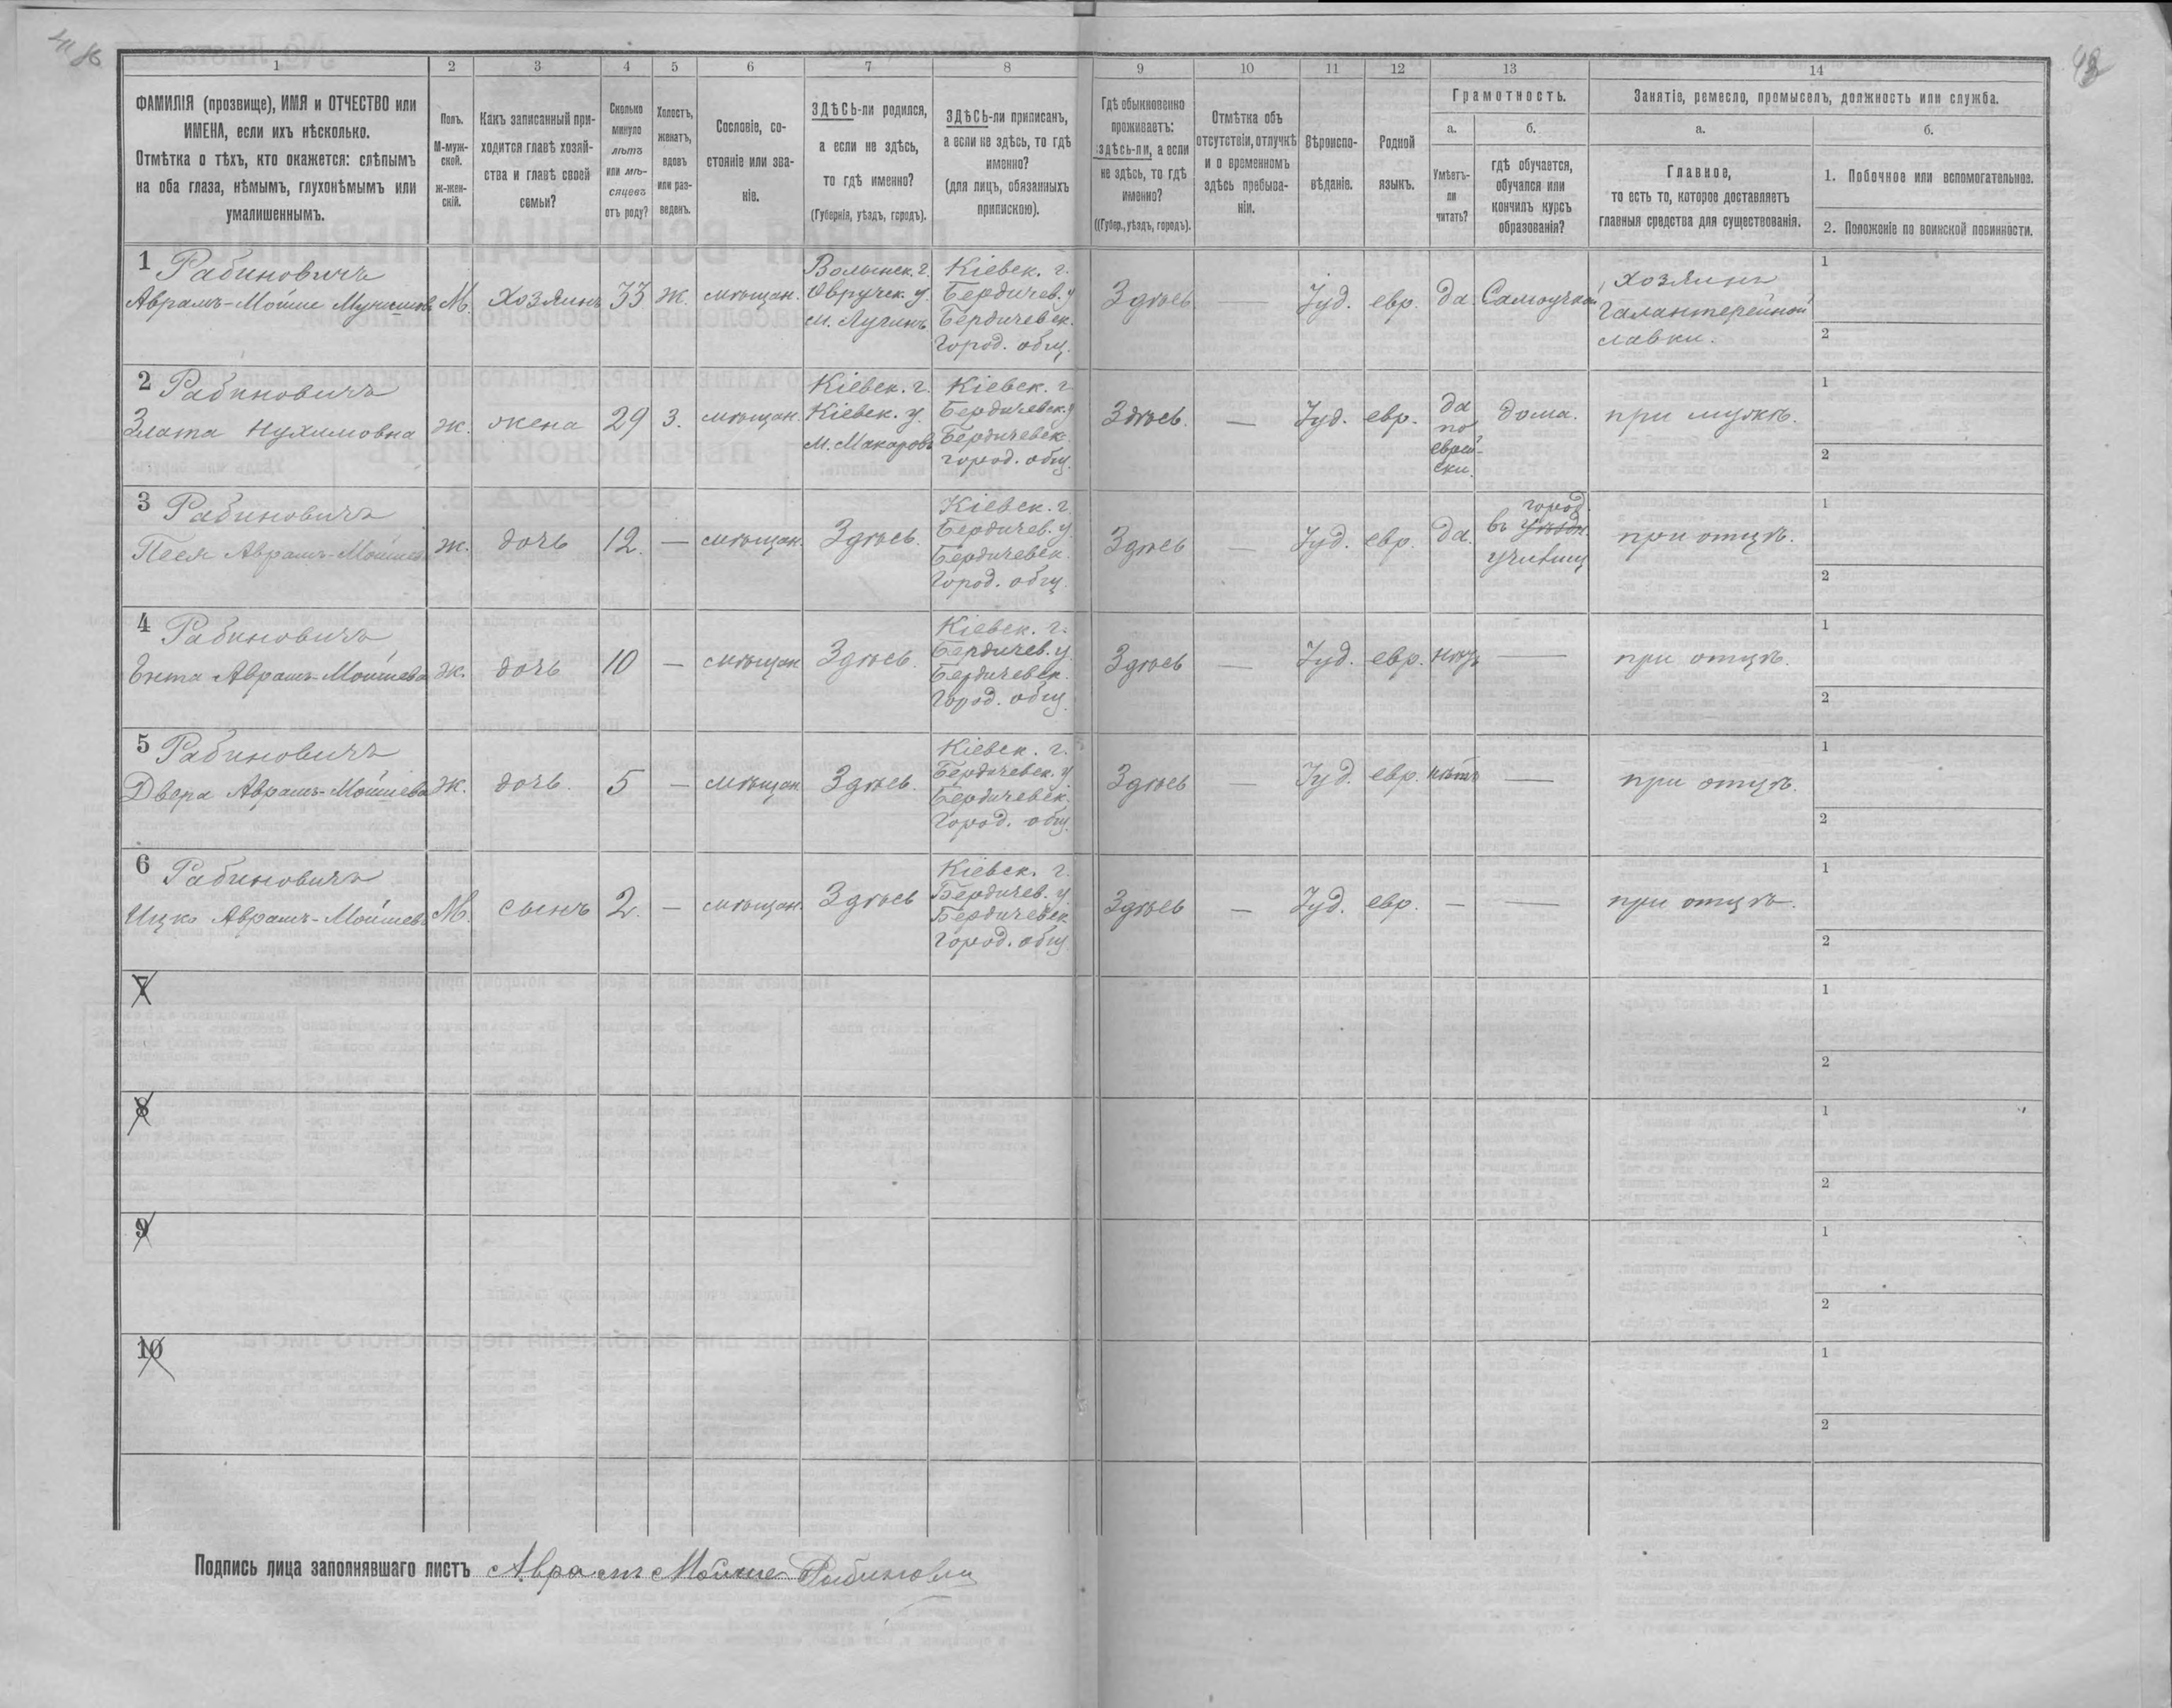 48
1 2 3 4 5 6 7 8 9 10 11 12 13 14
ФАМИЛІЯ (прозвище), ИМЯ и ОТЧЕСТВО или
ИМЕНА, если ихъ нѣсколько.
Отмѣтка о тѣхъ, кто окажется: слѣпымъ
на оба глаза, нѣмымъ, глухонѣмымъ или
умалишеннымъ.
Полъ.
М-муж-
ской.
ж-жен-
скій.
Какъ записанный при-
ходится главѣ хозяй-
ства и главѣ своей
семьи?
Сколько
минуло
лѣтъ
или мѣ-
сяцевъ
отъ роду?
Холостъ,
женатъ,
вдовъ
или раз-
веденъ.
Сословіе, со-
стояніе или зва-
ніе.
ЗДѢСЬ-ли родился,
а если не здѣсь,
то гдѣ именно?
(Губернія, уѣздъ, городъ).
ЗДѢСЬ-ли приписанъ,
а если не здѣсь, то гдѣ
именно?
(для лицъ, обязанныхъ
припискою).
Гдѣ обыкновенно
проживаетъ:
здѣсь-ли, а если
не здѣсь, то гдѣ
именно?
(Губер., уѣздъ, городъ).
Отмѣтка объ
отсутствіи, отлучкѣ
и о временномъ
здѣсь пребыва-
ніи.
Вѣроиспо-
вѣданіе.
Родной
языкъ.
Грамотность.
а.
Умѣетъ-
ли
читать?
б.
гдѣ обучается,
обучался или
кончилъ курсъ
образованія?
Занятіе, ремесло, промыселъ, должность или служба.
а.
Главное,
то есть то, которое доставляетъ
главныя средства для существованія.
б.
1. Побочное или вспомогательное.
2. Положеніе по воинской повинности.
1 Рабиновичъ
Аврамъ-Мойше
М.
Хозяинъ
33
ж.
мѣщан.
Волынск. г.
Овручск. у.
м. Лугинъ
Кіевск. г.
Бердичев. у
Бердичевск.
Город. общ.
Здѣсь
—
Іуд.
евр.
да
Самоучка
Хозяинъ
Галантерейной
лавки.
1
2
2 Рабиновичъ
Злата Нухимовна
ж.
жена
29
З.
мѣщан.
Кіевск. г.
Кіевск. у.
м. Макаровъ
Кіевск. г
Бердичевск. у
Бердичевск.
город. общ.
Здѣсь.
—
Іуд.
евр.
да
по
еврей-
ски.
дома.
при мужѣ.
1
2
3 Рабиновичъ
Песя Аврамъ-Мойшева
ж.
дочь
12.
—
мѣщан.
Здѣсь.
Кіевск. г
Бердичев. у
Бердичевск.
Город. общ.
Здѣсь
—
Іуд.
евр.
да.
город.
въ уѣздн.
училищ
при отцѣ.
1
2
4 Рабиновичъ
Ента Аврамъ-Мойшева
ж.
дочь
10
—
мѣщан
Здѣсь.
Кіевск. г.
Бердичев. у
Бердичевск.
Город. общ
Здѣсь
—
Іуд.
евр.
нѣтъ
—
при отцѣ.
1
2
5 Рабиновичъ
Двера Аврамъ-Мойшева
ж.
дочь.
5
—
мѣщан
Здѣсь.
Кіевск. г.
Бердичевск. у
Бердичевск.
Город. общ.
Здѣсь
—
Іуд.
евр.
нѣтъ
—
при отцѣ.
1
2
6 Рабиновичъ
Ицко Аврамъ-Мойшевъ
М.
сынъ
2.
—
мѣщан.
Здѣсь
Кіевск. г.
Бердичев. у.
Бердичевск
Город. общ
Здѣсь
—
Іуд.
евр.
—
—
при отцѣ.
1
2
7
1
2
8
1
2
9
1
2
10
1
2
Подпись лица заполнявшаго листъ Аврамъ Мойше Рабинович